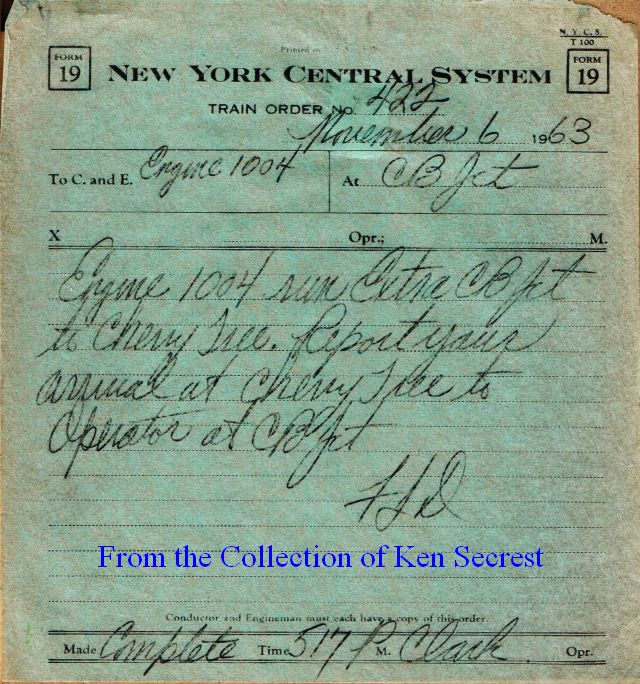 Printed in
N. Y. C. S.
T 100
FORM
19
NEW YORK CENTRAL SYSTEM
FORM
19
TRAIN ORDER NO. 422
November 6 1963
To C. and E. Engine 1004 At CB Jct
X Opr.; M.
Engine 1004 run Extra CB Jct
to Cherry Tree. Report your
arrival at Cherry Tree to
Operator at CB Jct
FLD
From the Collection of Ken Secrest
Conductor and Engineman must each have a copy of this order.
Made Complete Time 517 P. M. Clark Opr.